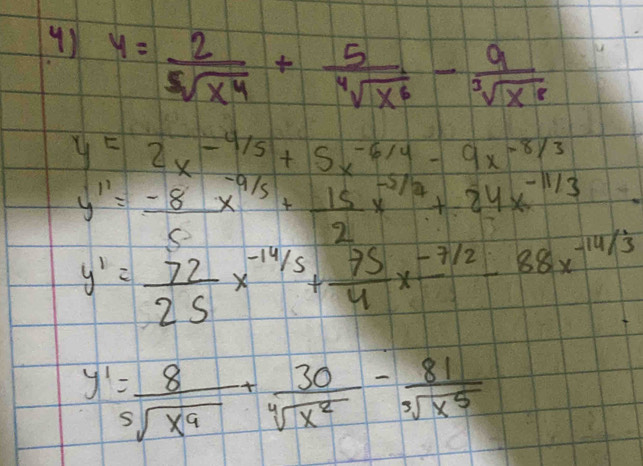 4) y = 2/⁵√x⁴ + 5/⁴√x⁶ - 9/³√x⁸
y = 2x^-4/5 + 5x^-6/4 - 9x^-8/3
y'' = -8/5 x^-9/5 + 15/2 x^-5/2 + 24x^-11/3
y' = 72/25 x^-14/5 + 75/4 x^-7/2 - 88x^-14/3
y' = 8/⁵√x⁹ + 30/⁴√x² - 81/³√x⁵